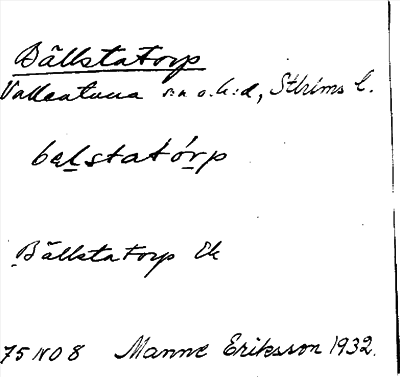 Bällstatorp
Vallentuna sn o. h:d, Sthlms l.
be̲l̲statór̲p
Bällstatorp Ek
75 NO 8 Manne Eriksson 1932.